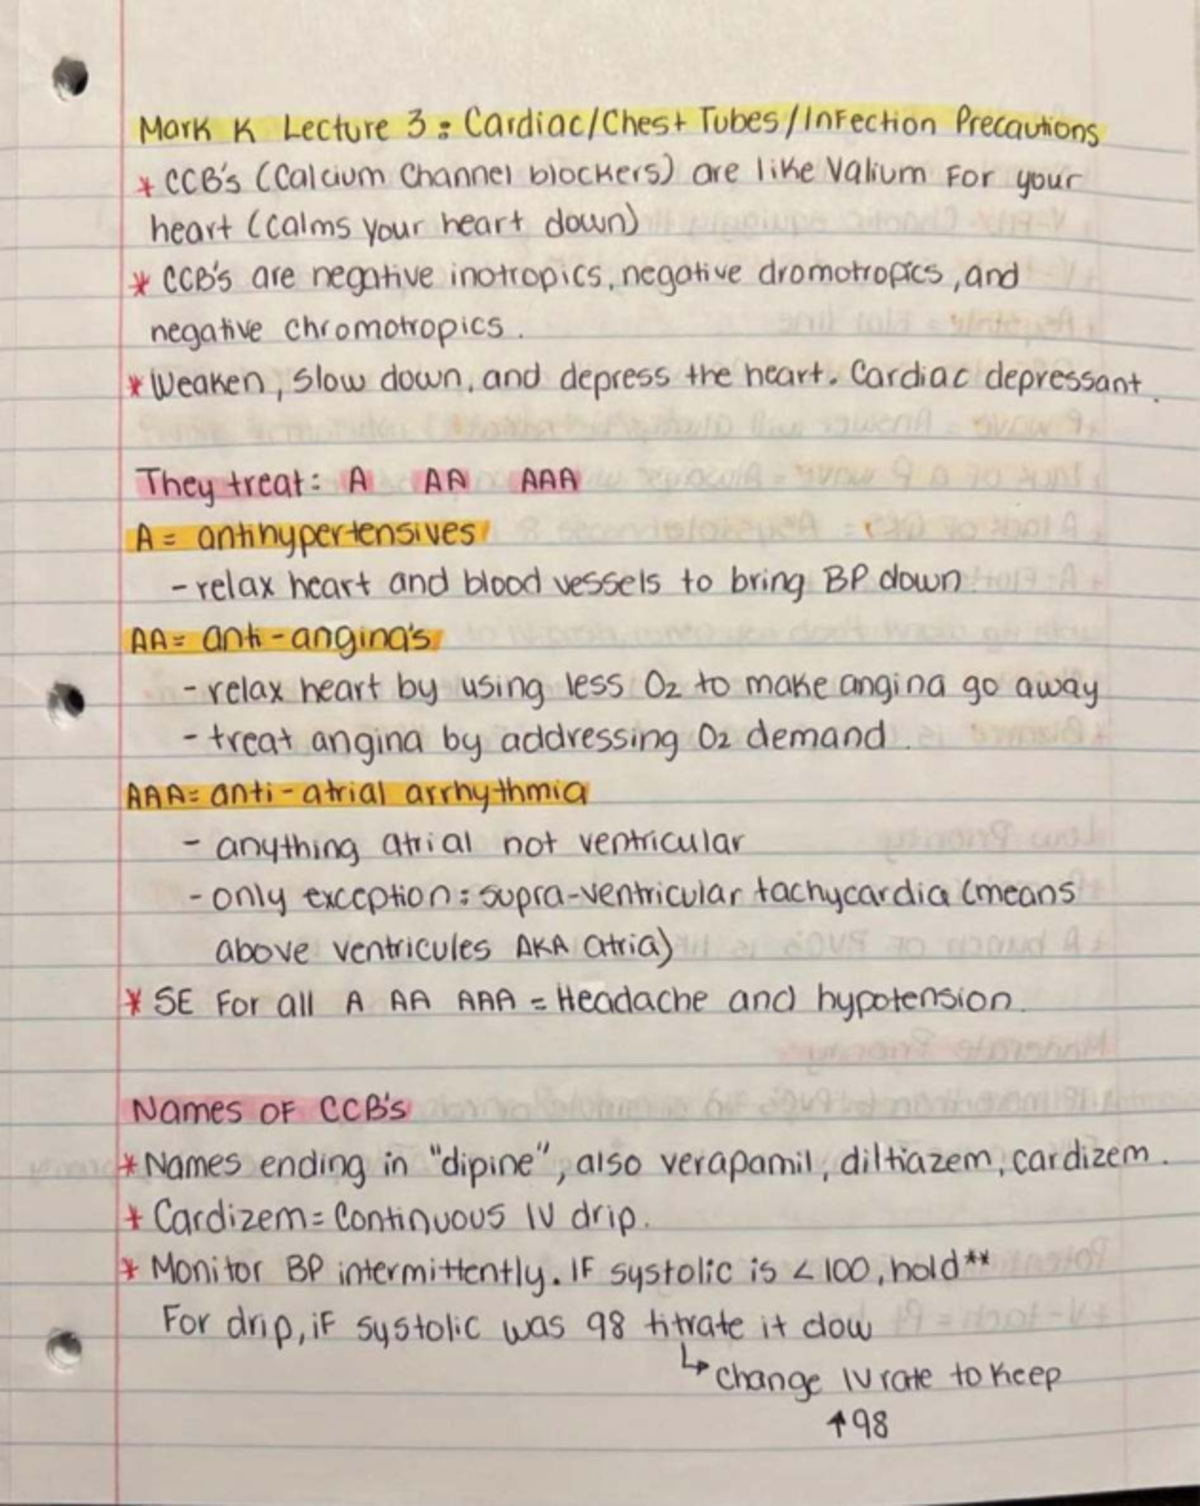 Mark K Lecture 3: Cardiac/Chest Tubes/Infection Precautions
* CCB's (Calcium Channel blockers) are like Valium For your
heart (calms your heart down)
* CCB's are negative inotropics, negative dromotropics, and
negative chromotropics.
* Weaken, slow down, and depress the heart. Cardiac depressant.
They treat: A AA AAA
A = antihypertensives
- relax heart and blood vessels to bring BP down
AA = anti-angina's
- relax heart by using less O2 to make angina go away
- treat angina by addressing O2 demand.
AAA= anti-atrial arrhythmia
- anything atrial not ventricular
- only exception: supra-ventricular tachycardia (means
above ventricules AKA atria)
* SE For all A AA AAA = Headache and hypotension.
Names OF CCB's
* Names ending in "dipine", also verapamil, diltiazem, cardizem.
* Cardizem= Continuous IV drip.
* Monitor BP intermittently. IF systolic is < 100, hold**
For drip, iF systolic was 98 titrate it dow
↳ change IV rate to keep
↑98